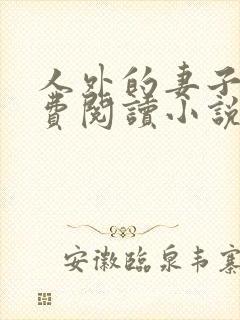 人外的妻子
費閱讀小說
安徽臨泉韦寨